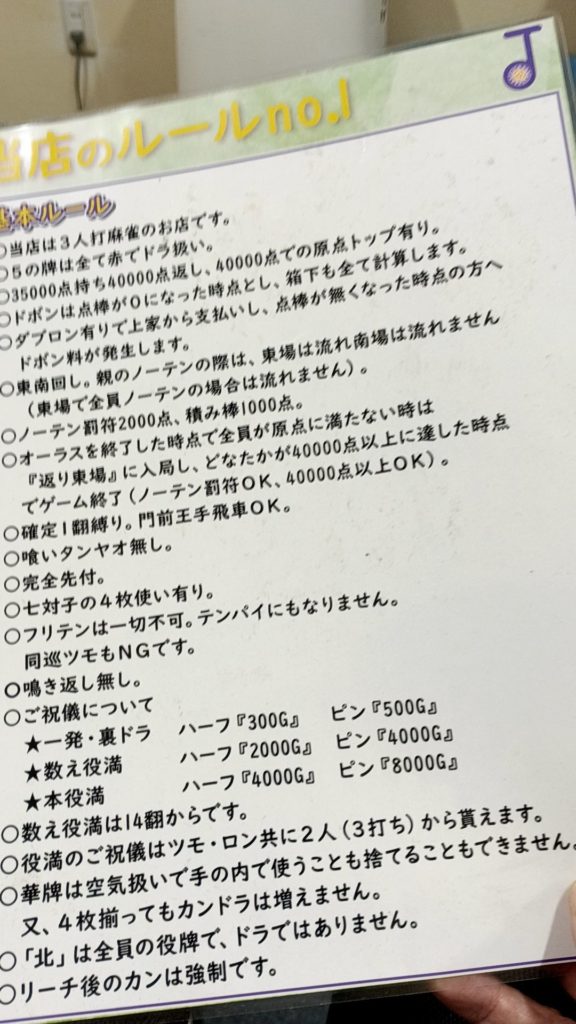 当店のルールno.1
基本ルール
○当店は3人打麻雀のお店です。
○5の牌は全て赤でドラ扱い。
○35000点持ち40000点返し、40000点での原点トップ有り。
○ドボンは点棒が0になった時点とし、箱下も全て計算します。
○ダブロン有りで上家から支払いし、点棒が無くなった時点の方へ
ドボン料が発生します。
○東南回し。親のノーテンの際は、東場は流れ南場は流れません
(東場で全員ノーテンの場合は流れません)。
○ノーテン罰符2000点、積み棒1000点。
○オーラスを終了した時点で全員が原点に満たない時は
『返り東場』に入局し、どなたかが40000点以上に達した時点
でゲーム終了(ノーテン罰符OK、40000点以上OK)。
○確定1翻縛り。門前王手飛車OK。
○喰いタンヤオ無し。
○完全先付。
○七対子の4枚使い有り。
○フリテンは一切不可。テンパイにもなりません。
同巡ツモもNGです。
○鳴き返し無し。
○ご祝儀について
★一発・裏ドラ ハーフ『300G』 ピン『500G』
★数え役満 ハーフ『2000G』 ピン『4000G』
★本役満 ハーフ『4000G』 ピン『8000G』
○数え役満は14翻からです。
○役満のご祝儀はツモ・ロン共に2人(3打ち)から貰えます。
○華牌は空気扱いで手の内で使うことも捨てることもできません。
又、4枚揃ってもカンドラは増えません。
○「北」は全員の役牌で、ドラではありません。
○リーチ後のカンは強制です。